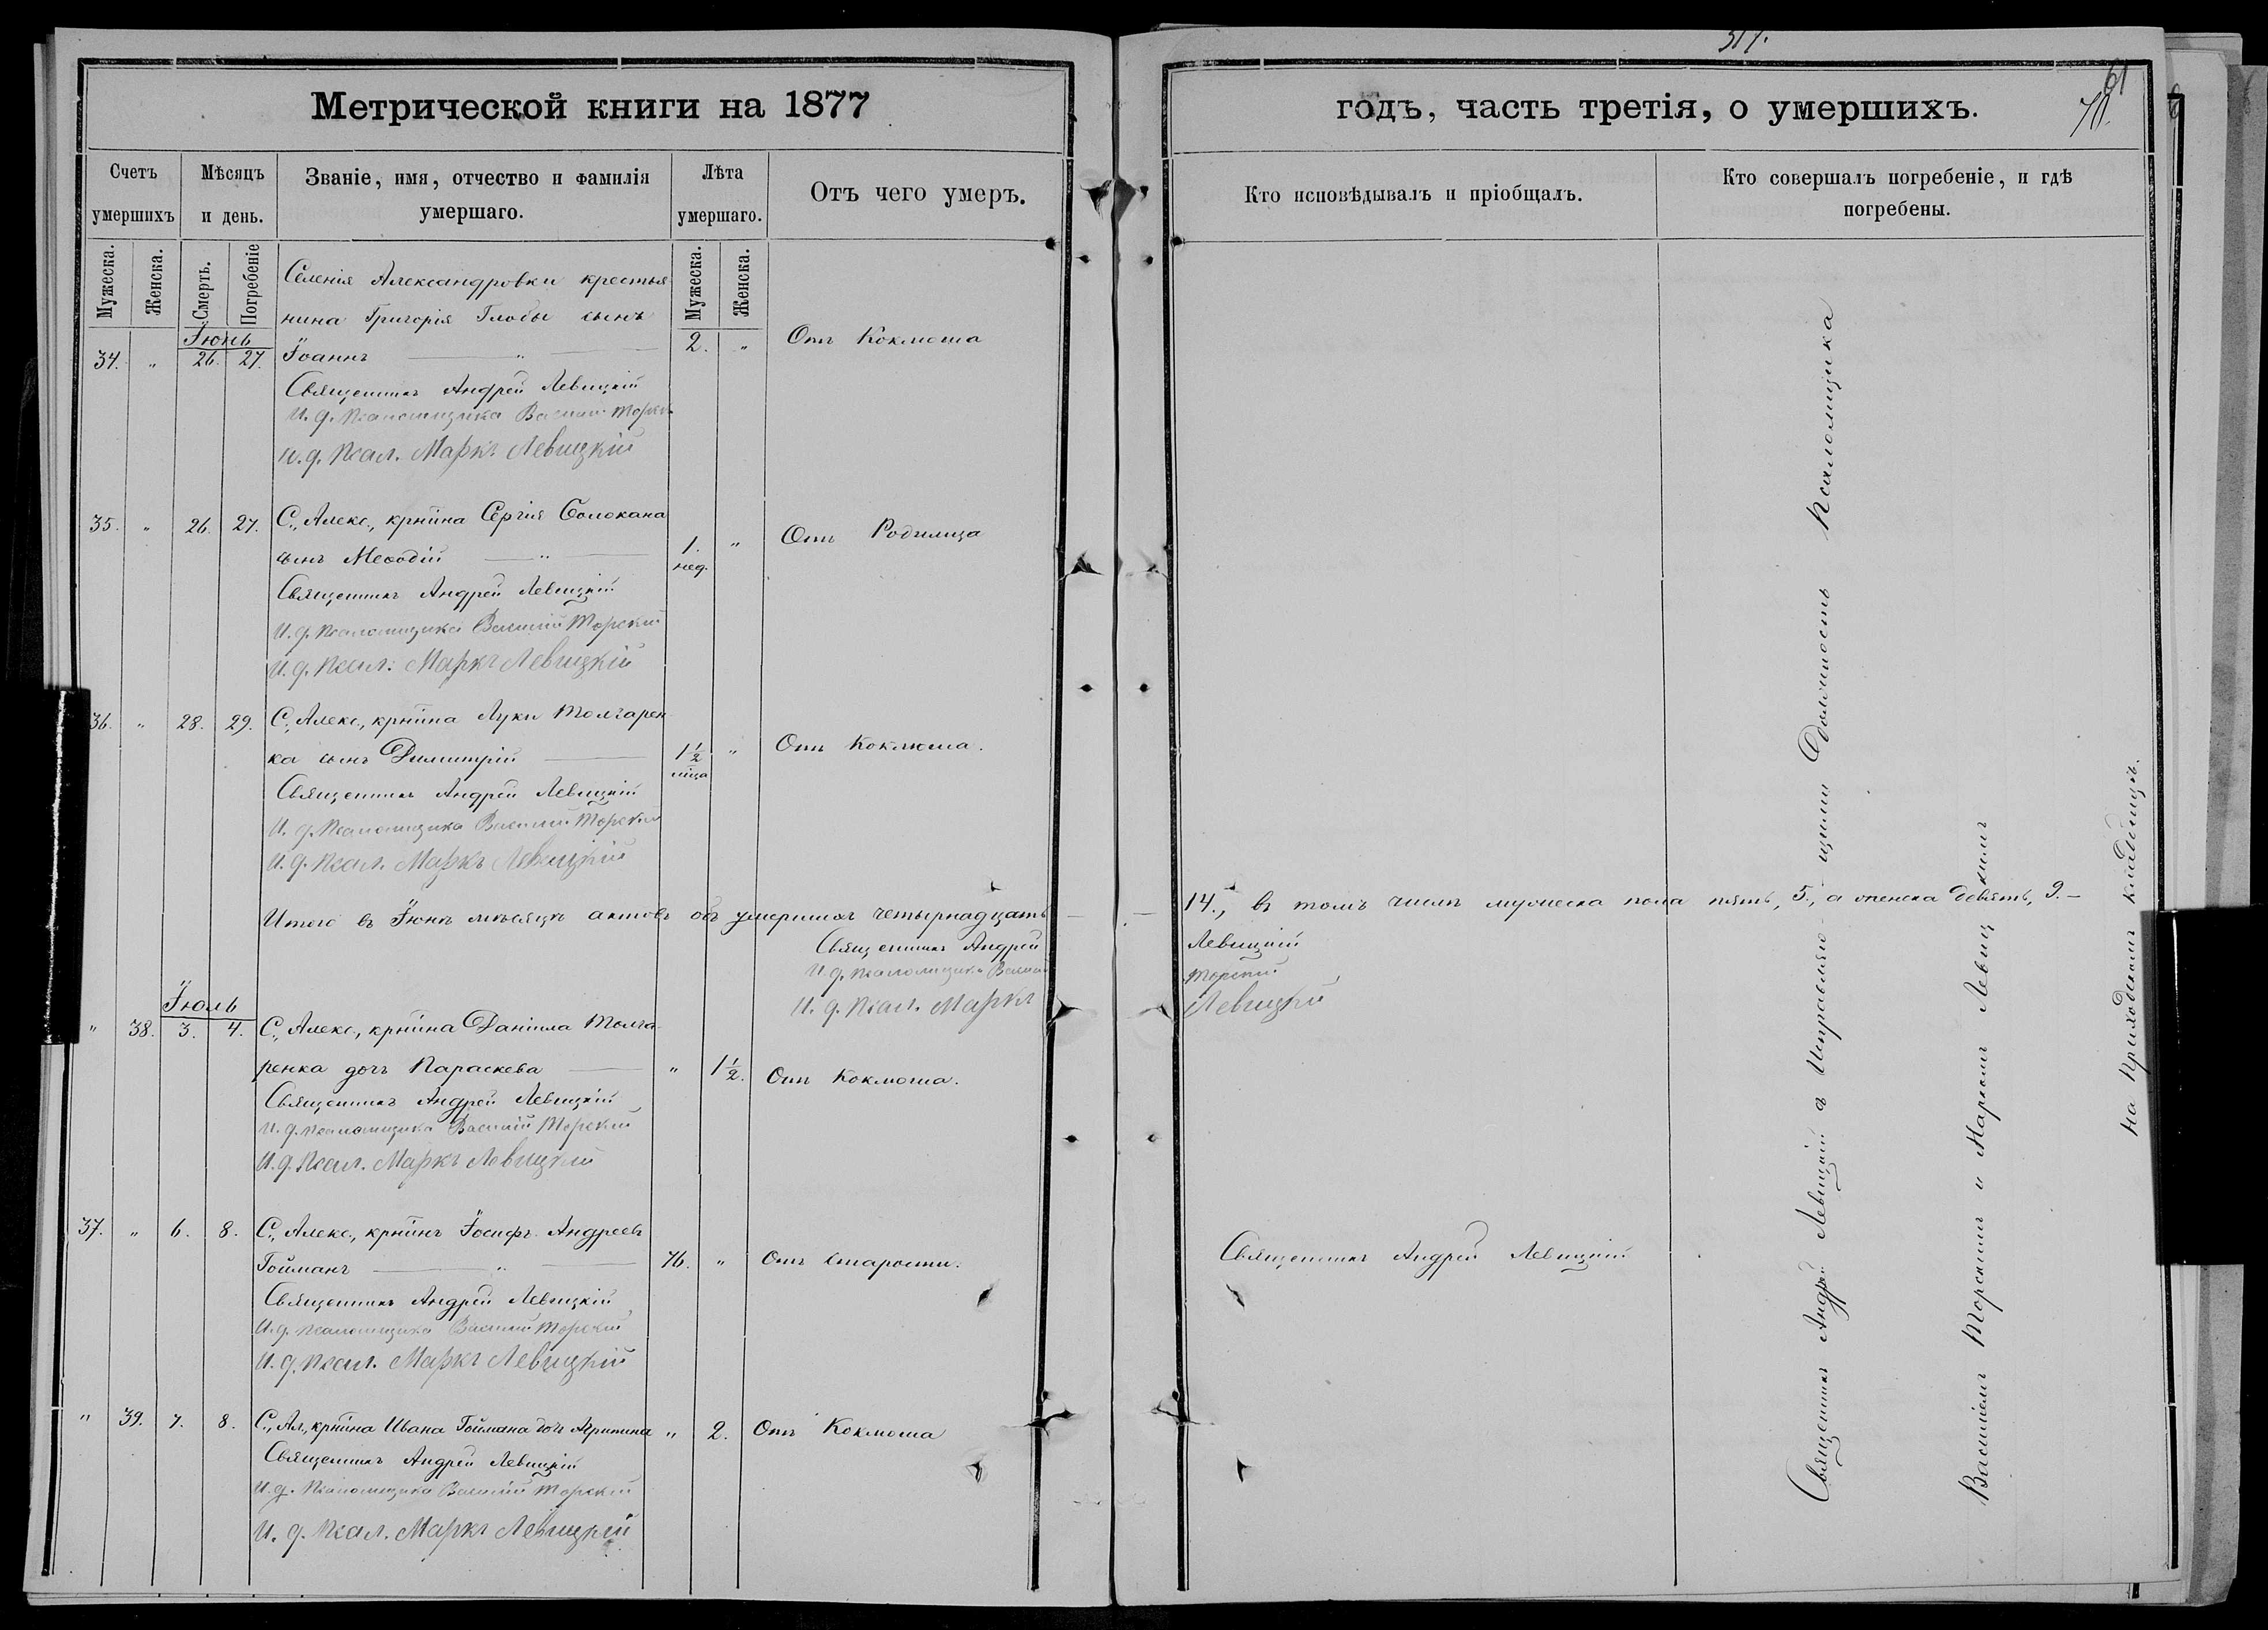 317.
61
Метрической книги на 1877
годъ, часть третія, о умершихъ.
Счетъ умершихъ
Мѣсяцъ и день.
Званіе, имя, отчество и фамилія умершаго.
Лѣта умершаго.
Отъ чего умеръ.
Кто исповѣдывалъ и пріобщалъ.
Кто совершалъ погребеніе, и гдѣ погребены.
Мужеска.
Женска.
Смерть.
Погребеніе
Мужеска.
Женска.
Селенія Александровки крестья
нина Григорія Глобы сынъ
Іюнь
34. " 26. 27. Іоаннъ — " — 2. " Отъ Коклюша
Священникъ Андрей Левицкій
И. д. псаломщика Василій Торскій
И. д. псал. Маркъ Левицкій
35. " 26. 27. С., Алекс., крнина Сергія Солокана
сынъ Меѳодій — " — 1. нед. " Отъ Родимца
Священникъ Андрей Левицкій
И. д. псаломщика Василій Торский
И. д. псал. Маркъ Левицкій
36. " 28. 29. С., Алекс., крнина Луки Толгарен
ка сынъ Димитрій — 1 1/2 мца " Отъ Коклюша.
Священникъ Андрей Левицкій
И. д. псаломщика Василий Торский
И. д. псал. Маркъ Левицкій
Итого въ Іюнѣ мѣсяцѣ актовъ объ умершихъ четырнадцать — — 14., въ томъ числѣ мужеска пола пять, 5., а женска девять, 9. —
Священникъ Андрей Левицкій
И. д. псаломщика Василій Торский
И. д. псал. Маркъ Левицкій
Іюль
" 38. 3. 4. С., Алекс., крнина Даніила Толга
ренка дочь Параскева — " 1 1/2. Отъ Коклюша.
Священникъ Андрей Левицкій
И. д. псаломщика Василій Торский
И. д. псал. Маркъ Левицкій
37. " 6. 8. С., Алекс., крнинъ Іосифъ Андреевъ
Гойманъ — " — 76. " Отъ старости. Священникъ Андрей Левицкій
Священникъ Андрей Левицкій
И. д. псаломщика Василій Торский
И. д. псал. Маркъ Левицкій
" 39. 7. 8. С., Ал., крнина Ивана Гоймана дочь Агрипина " 2. Отъ Коклюша
Священникъ Андрей Левицкій
И. д. псаломщика Василій Торский
И. д. псал. Маркъ Левицкій
Священникъ Андрей Левицкій съ Исправляющими Должность Псаломщика
Василіемъ Торскимъ и Маркомъ Левицкимъ
на приходскомъ кладбищѣ.